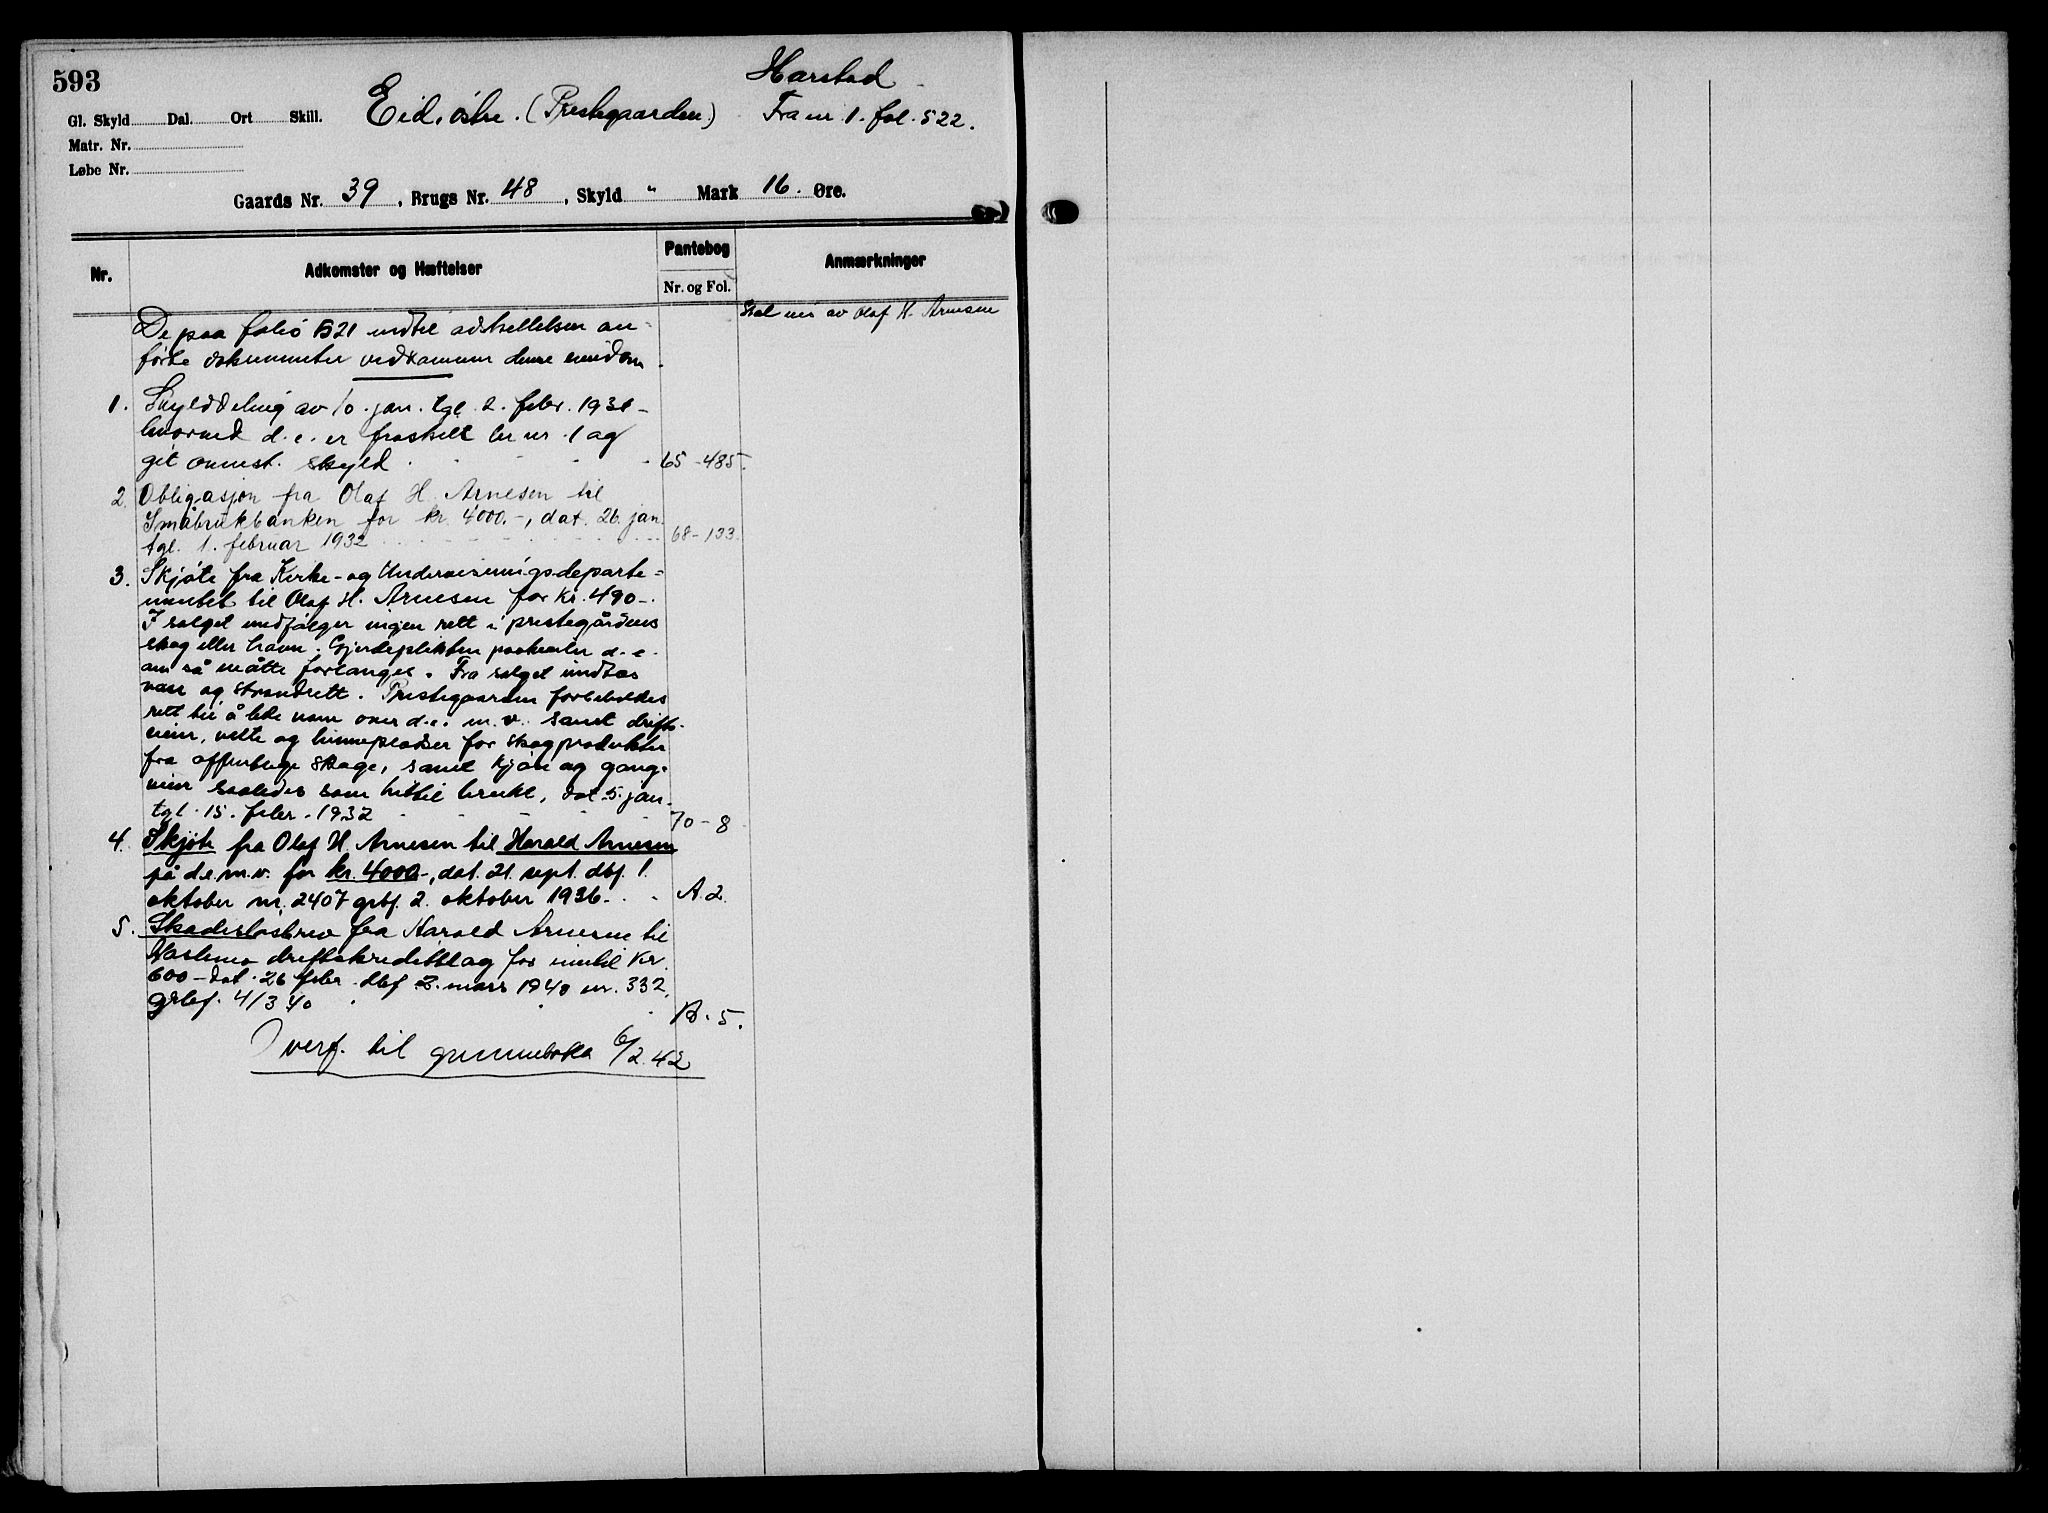 593
Harstad
Gl. Skyld Dal. Ort Skill. Eid, østre. (Prestegaarden) Fra nr 1. fol. 522.
Matr. Nr.
Løbe Nr.
Gaards Nr. 39, Brugs Nr. 48, Skyld " Mark 16. Øre.
Nr. Adkomster og Hæftelser Pantebog Nr. og Fol. Anmærkninger
Skal eies av Olaf H. Arnesen
De paa folio 521 indtil adskillelsen an-
førte dokumenter vedkommer denne eiendom.
1. Skylddeling av 10. jan. tgl. 2. febr. 1931 -
hvorved d. e. er fraskilt br nr. 1 og
git ovenst. skyld. 65-485.
2. Obligasjon fra Olaf H. Arnesen til
Småbrukbanken for kr. 4000.-, dat. 26. jan.
tgl. 1. februar 1932 68-133.
3. Skjøte fra Kirke- og Undervisningsdeparte=
mentet til Olaf H. Arnesen for kr. 490-.
I salget medfølger ingen rett i prestegårdens
skog eller havn. Gjerdeplikten paahviler d. e.
om så måtte forlanges. Fra salget undtas
vass og strandrett. Prestegaarden forbeholdes
rett til å lede vann over d.e. m. v. samt drifts-
veier, velte og binneplasser for skogprodukter
fra offentlige skoge, samt kjøre og gang=
veier saaledes som hittil brukt, dat. 5. jan.
tgl. 15. febr. 1932 70-8
4. Skjøte fra Olaf H. Arnesen til Harald Arnesen
på d.e. m.v. for kr. 4000-, dat. 21. sept. dbf. 1.
oktober nr. 2407 grbf. 2. oktober 1936. A. 2.
5. Skadesløsbrev fra Harald Arnesen til
driftskredittlag for inntil Kr.
600- dat. 26 febr. dbf 2. mars 1940 nr. 332,
grbf. 4/3 40 A. 5.
Overf. til grunnboka 6/2.42